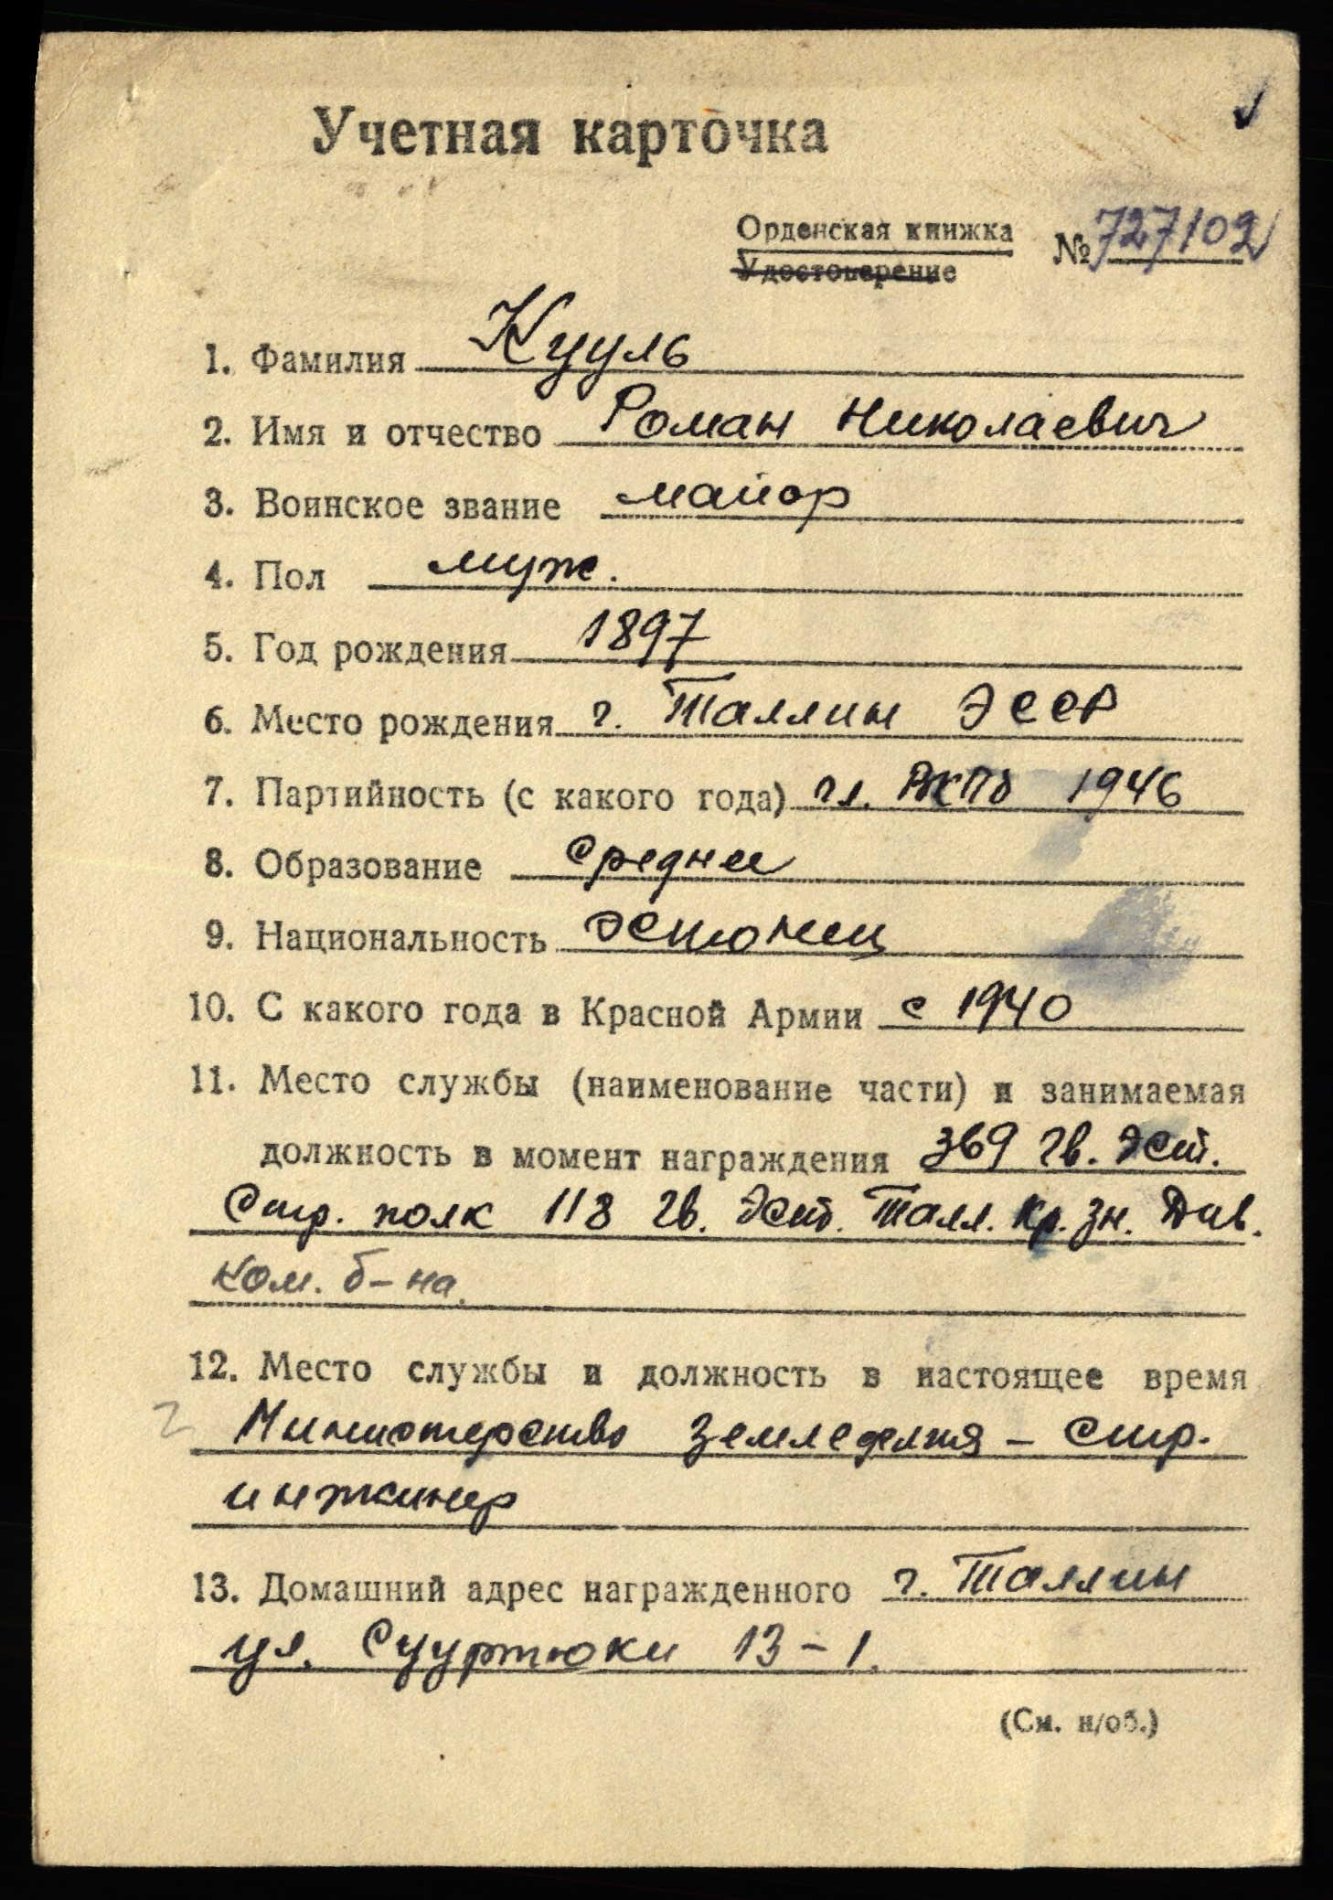 Учетная карточка
Орденская книжка № 727102
Удостоверение
1. Фамилия Кууль
2. Имя и отчество Роман Николаевич
3. Воинское звание майор
4. Пол муж.
5. Год рождения 1897
6. Место рождения г. Таллин ЭССР
7. Партийность (с какого года) чл. ВКПб 1946
8. Образование среднее
9. Национальность эстонец
10. С какого года в Красной Армии с 1940
11. Место службы (наименование части) и занимаемая
должность в момент награждения 369 гв. Эст.
Стр. полк 118 гв. Эст. Талл. Кр. Зн. Див.
Ком. б-на.
12. Место службы и должность в настоящее время
Министерство Земледелия - стр.
инженер
13. Домашний адрес награжденного г. Таллин
ул. Сууртюки 13-1.
(См. н/об.)